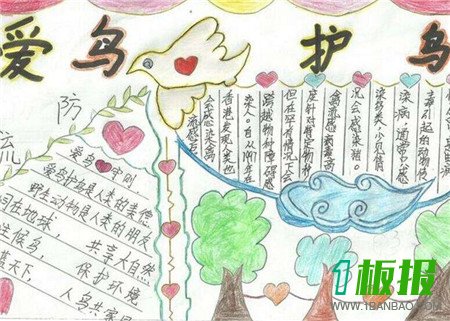 爱鸟 护鸟
防
流
爱鸟守则
爱鸟护鸟是人类的美德
野生动物是人类的朋友
同在地球，共享大自然
候鸟，保护环境
蓝天下，人鸟共家园
引起的动物传
染病，通常只感
染鸟类，少见情
况会感染猪。
禽流感病毒高
度针对特定物种，
但在罕有情况下会
跨越物种障碍感
染人。自从1997年在
香港发现人类也
会感染禽
流感后
1板报
WWW.1BANBAO.COM